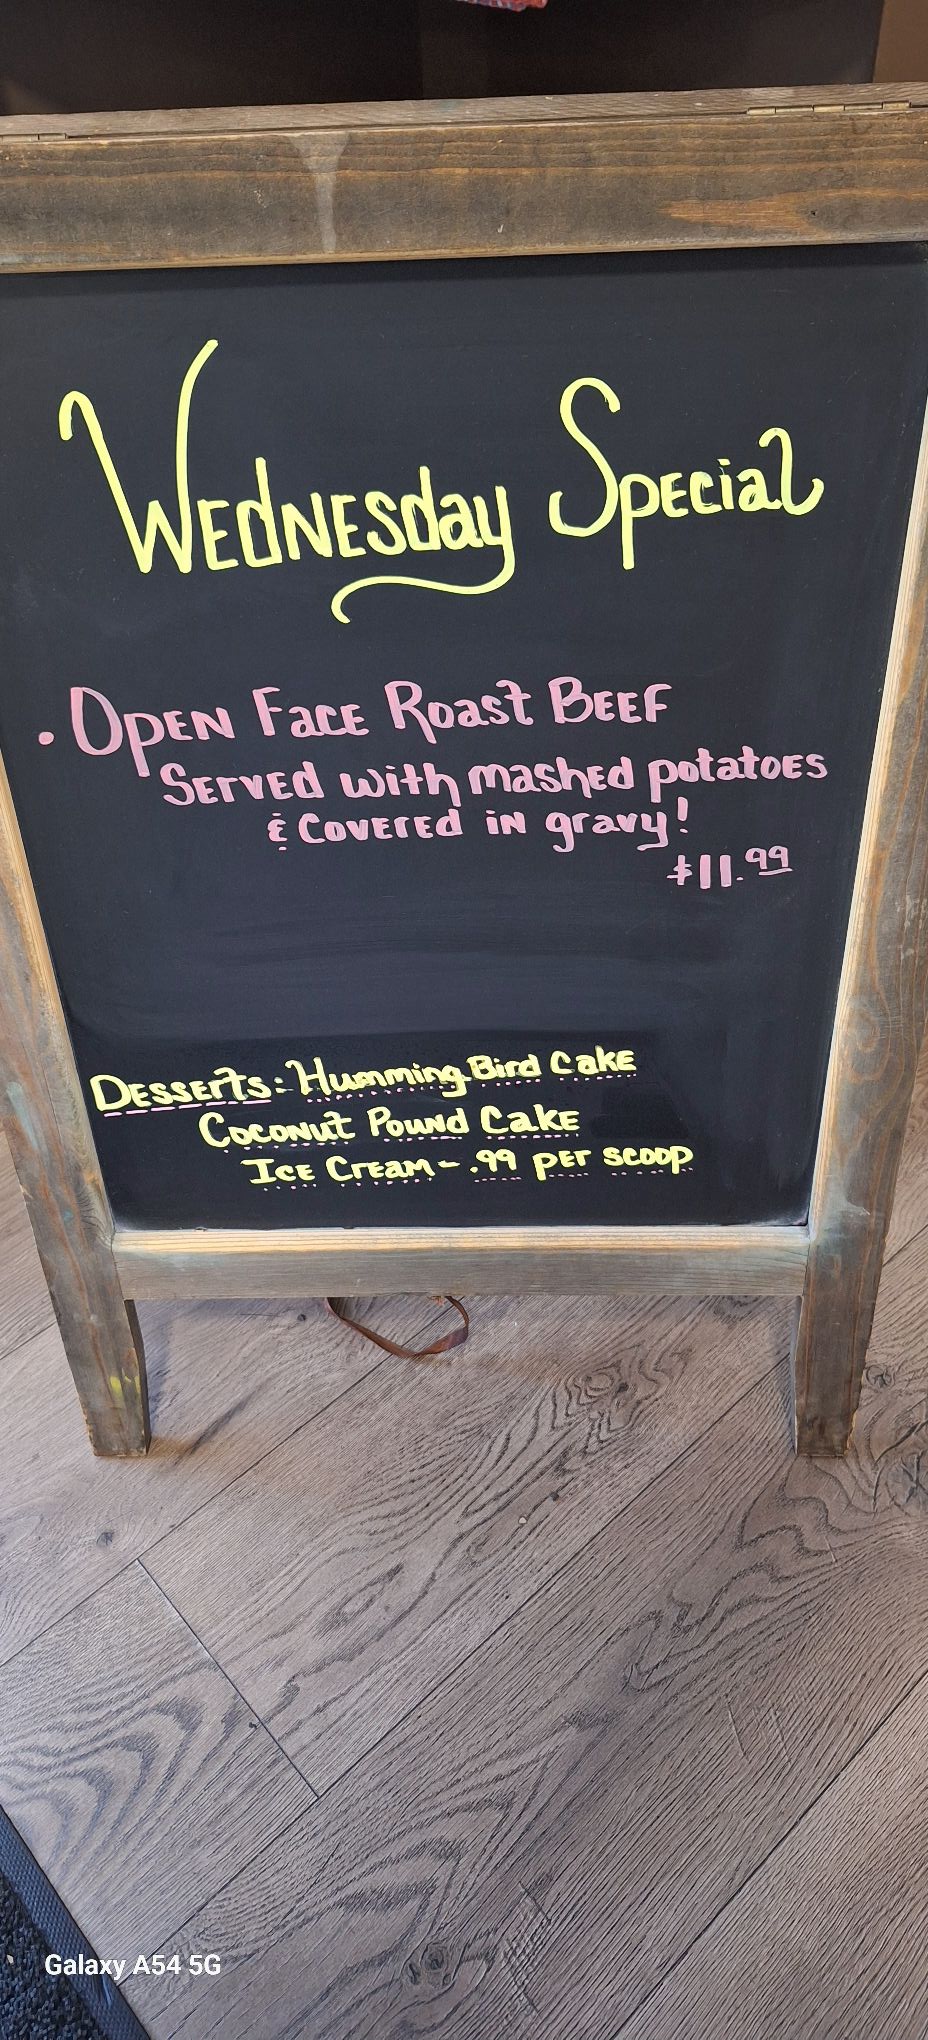 Wednesday Special
• Open Face Roast Beef
Served with mashed potatoes
& Covered in gravy!
$11.99
Desserts: Humming Bird Cake
Coconut Pound Cake
Ice Cream - .99 per scoop
Galaxy A54 5G